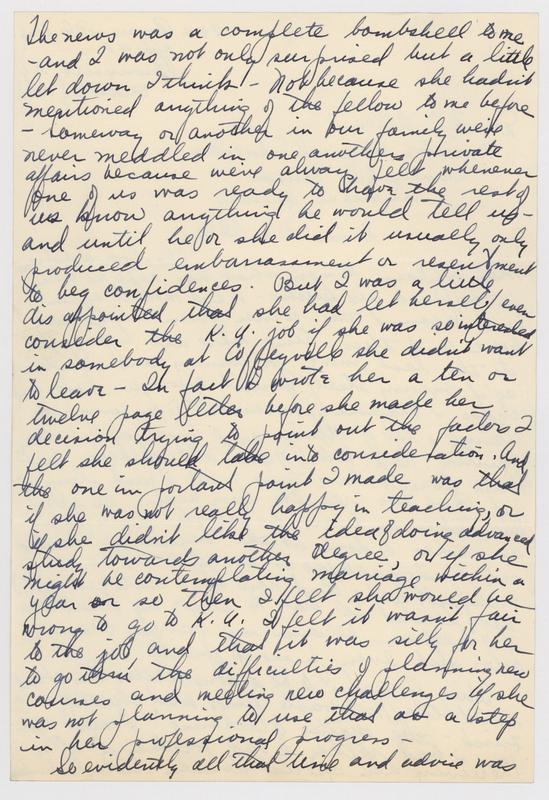 The news was a complete bombshell to me
- and I was not only surprised but a little
let down I think - Not because she hadn't
mentioned anything of the fellow to me before
- someway or another in our family we've
never meddled in one anothers private
affairs because we've always felt whenever
one of us was ready to have the rest of
us know anything he would tell us -
and until he or she did it usually only
produced embarrassment or resentment
to beg confidences. But I was a little
disappointed that she had let herself even
consider the K.U. job if she was so interested
in somebody at Coffeyville she didn't want
to leave - In fact I wrote her a ten or
twelve page letter before she made her
decision trying to point out the factors I
felt she should take into consideration. And
the one important point I made was that
if she was not really happy in teaching, or
if she didn't like the idea of doing advanced
study towards another degree, or if she
might be contemplating marriage within a
year or so then I felt she would be
wrong to go to K.U. I felt it wasn't fair
to the job and that it was silly for her
to go thru the difficulties of planning new
courses and meeting new challenges if she
was not planning to use that as a step
in her professional progress -
So evidently all that time and advice was